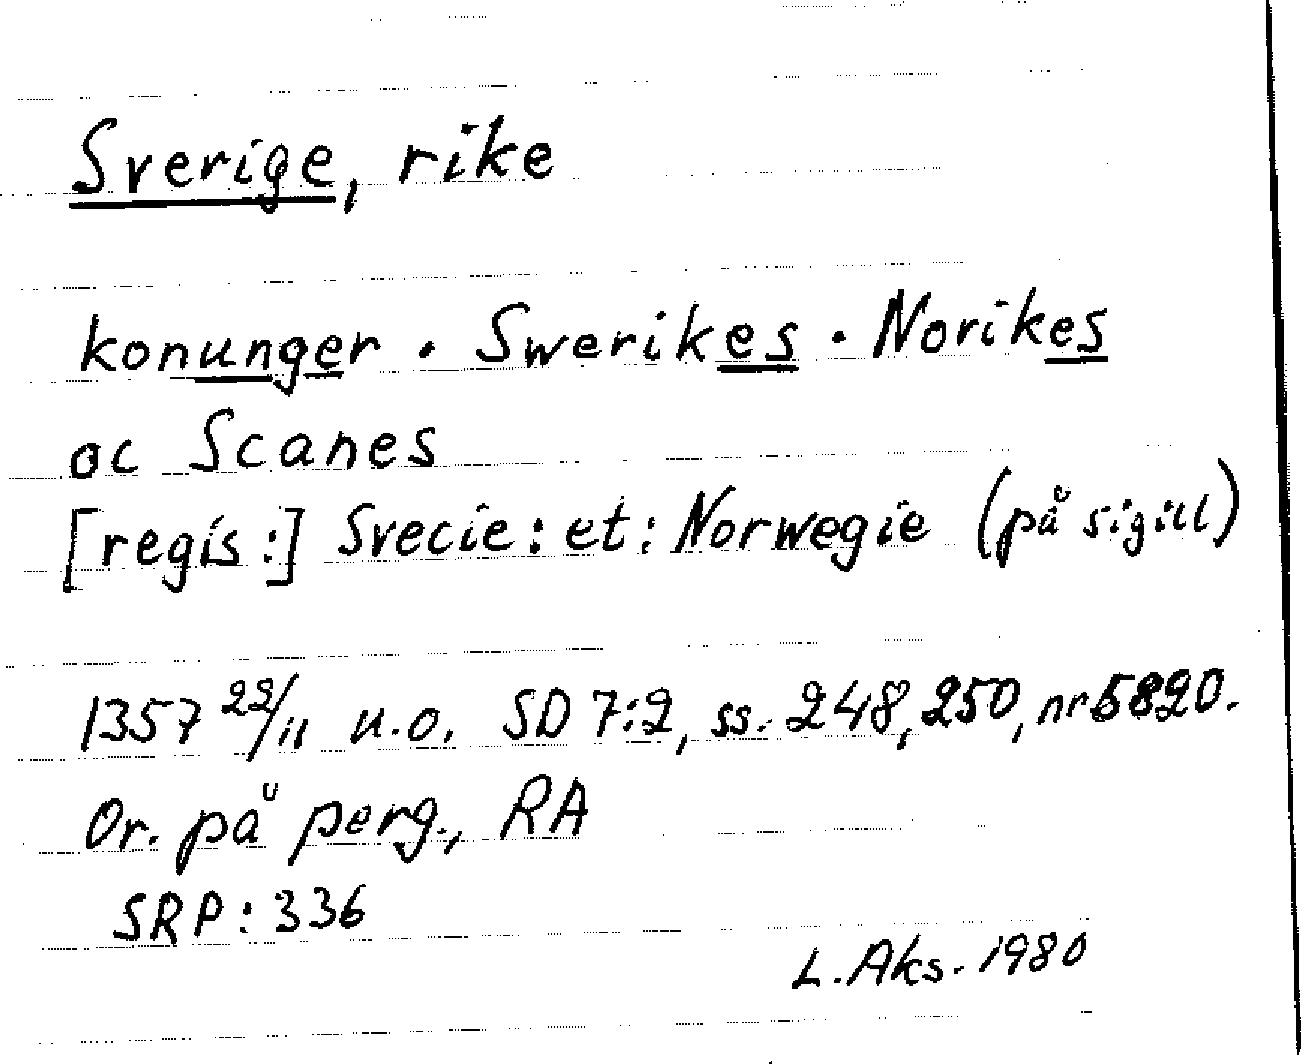 Sverige, rike
konunger · Swerikes · Norikes
oc Scanes
[regis:] Svecie: et: Norwegie (på sigill)
1357 22/11 u.o. SD 7:2, ss. 248, 250, nr 5820.
Or. på perg., RA
SRP: 336
L. Aks. 1980